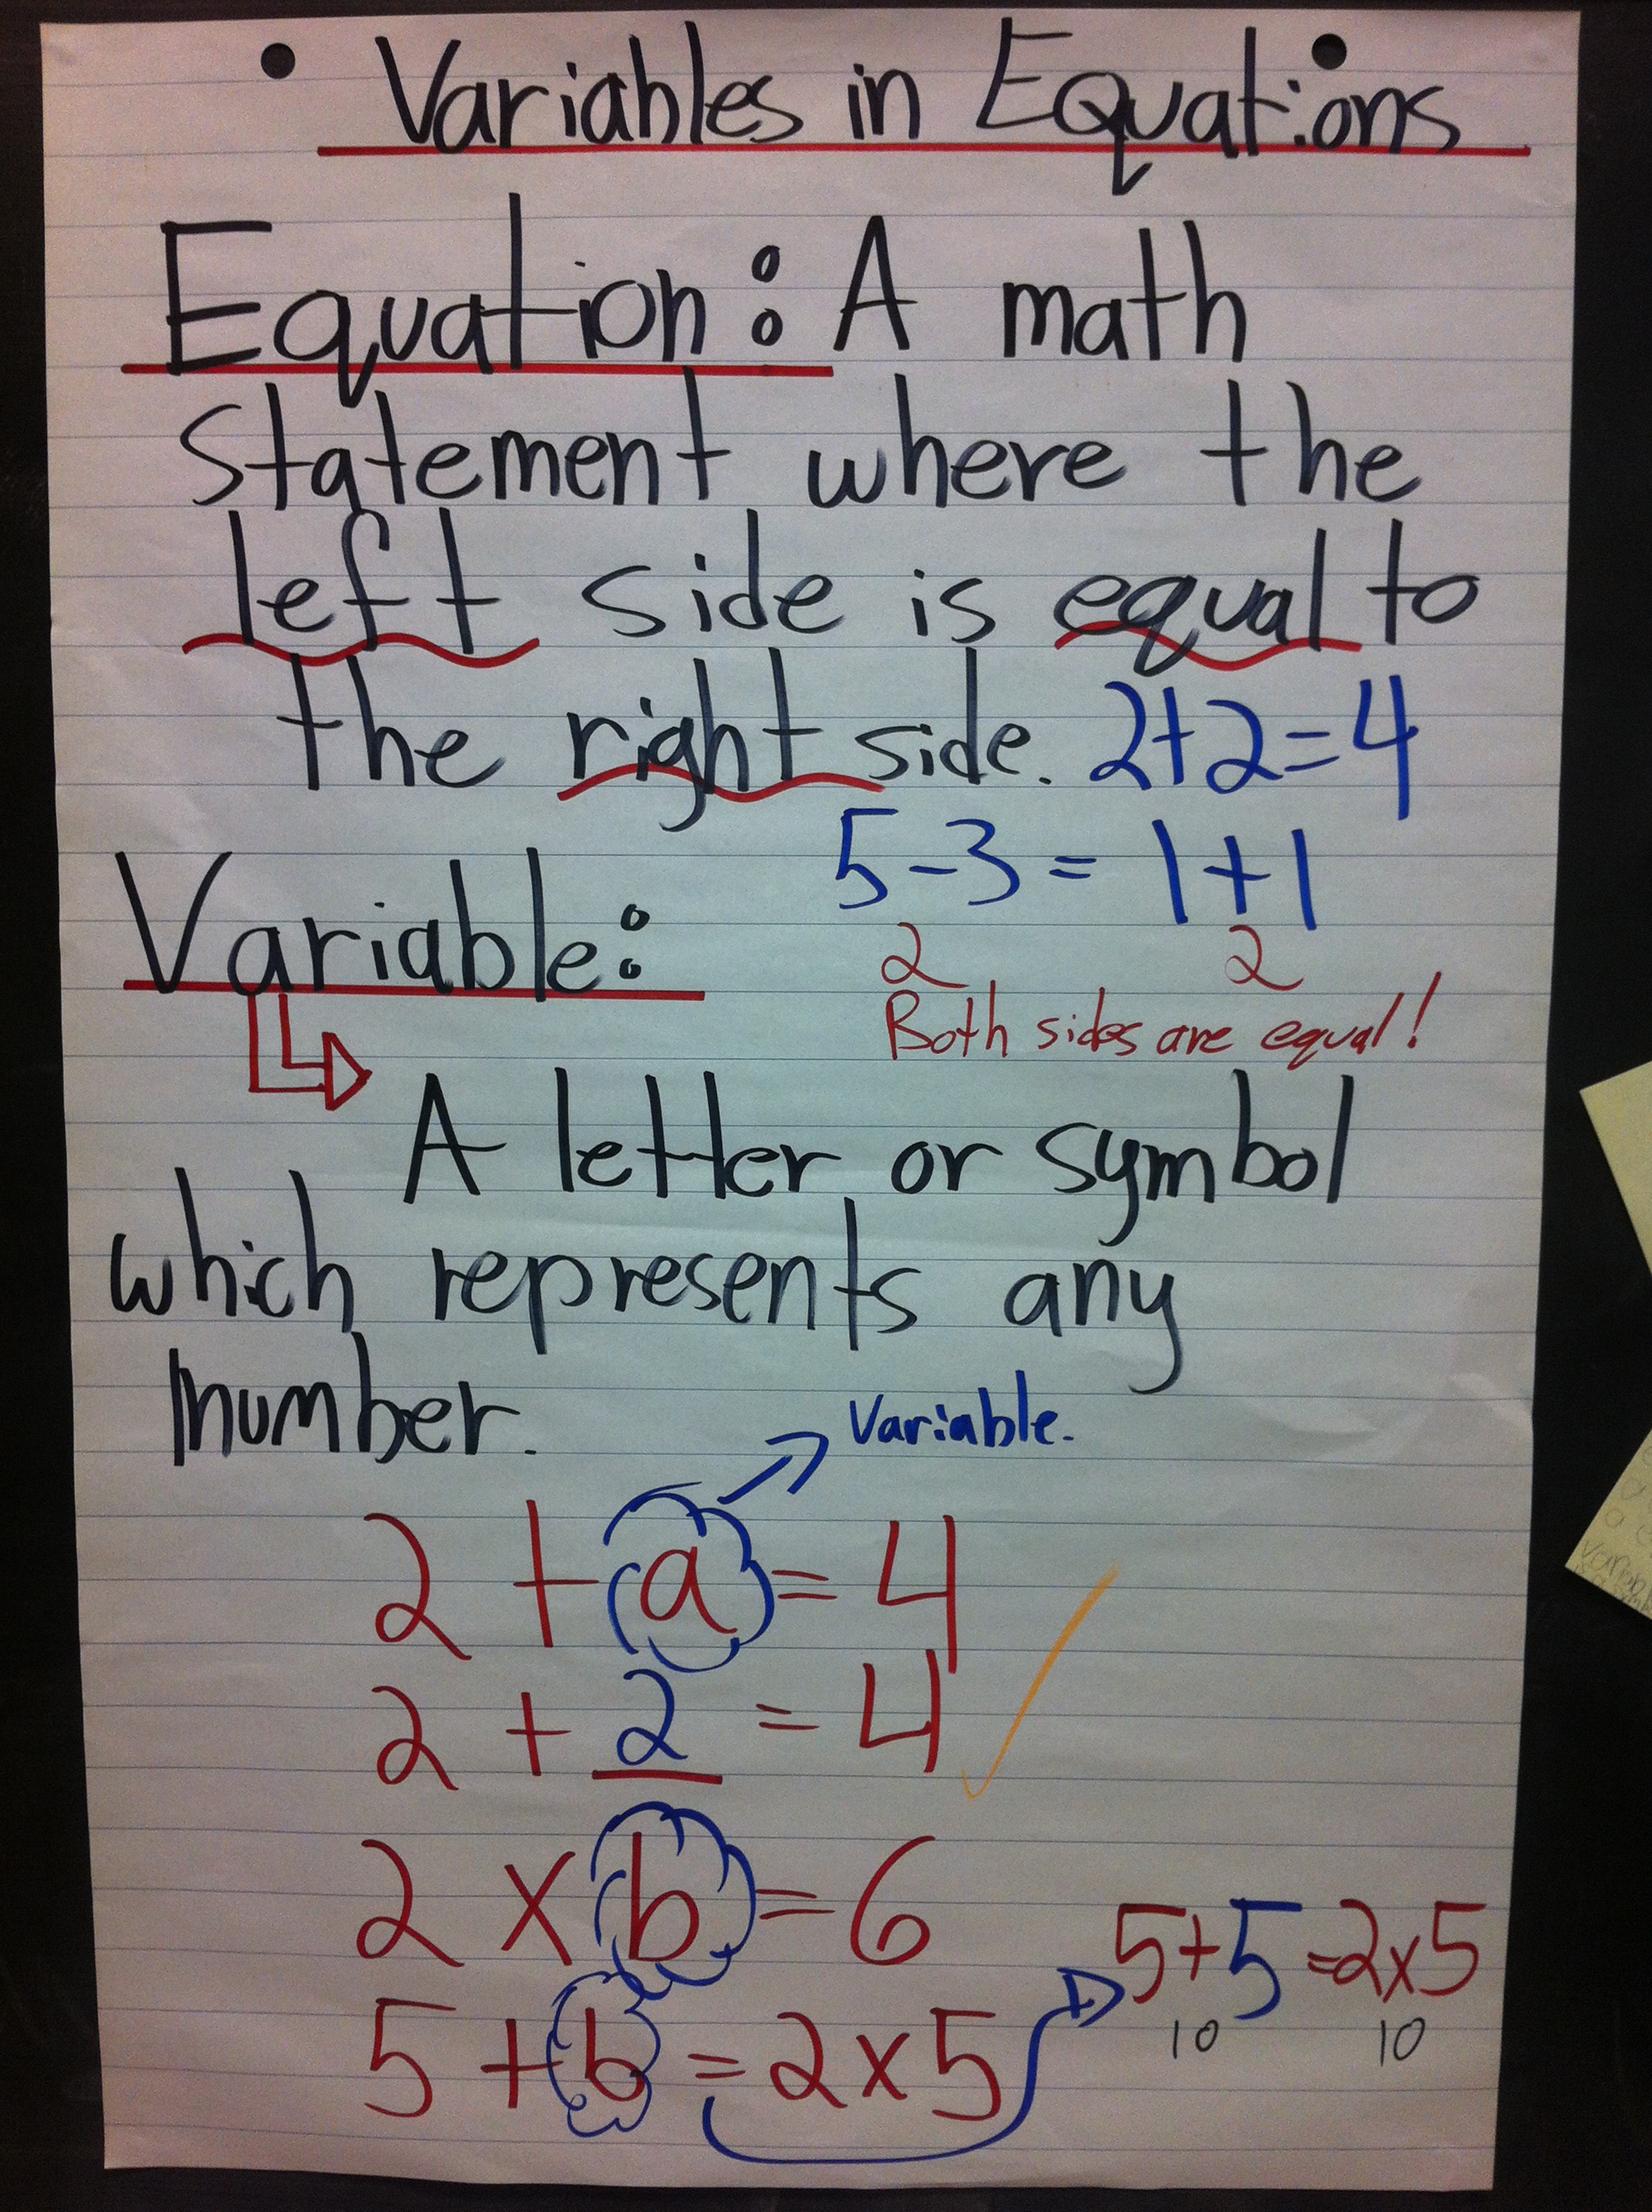 Variables in Equations
Equation: A math
statement where the
left side is equal to
the right side. 2+2=4
5-3 = 1+1
Variable:
2 2
Both sides are equal!
A letter or symbol
which represents any
number.
Variable.
2 + a = 4
2 + 2 = 4
2 x b = 6
5+5=2x5
10 10
5 + b = 2x5